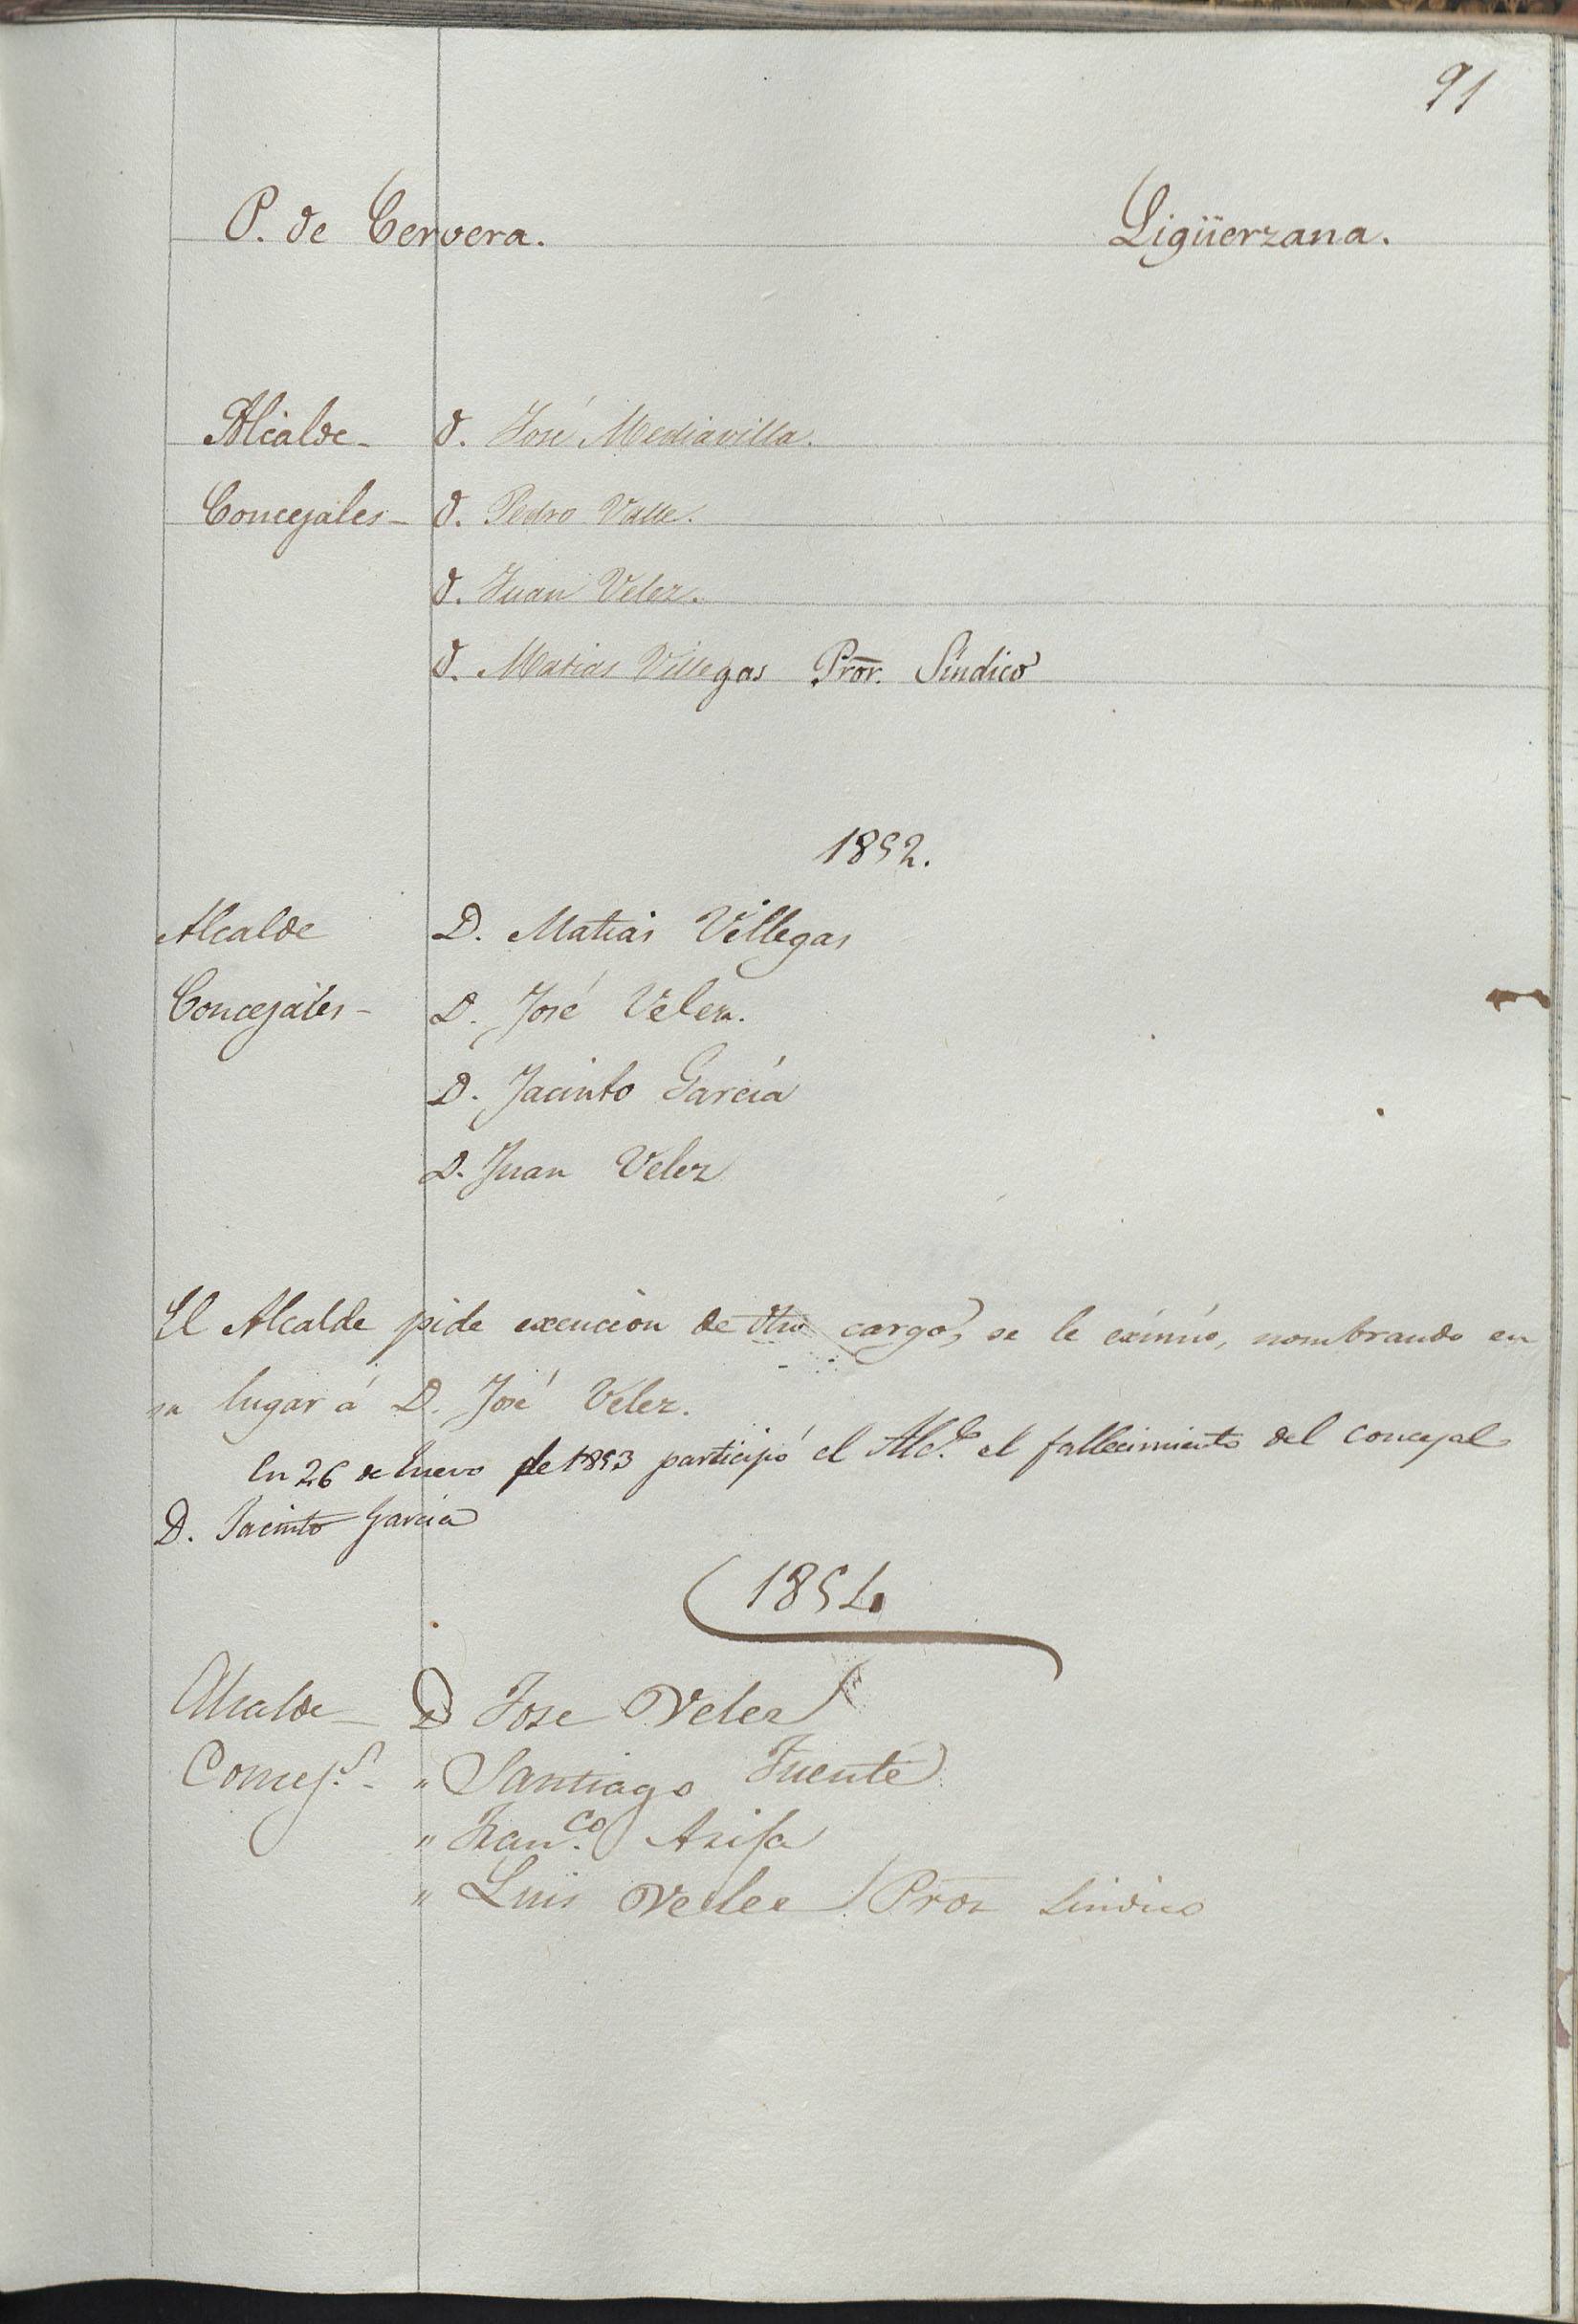 91
P. de Cervera. Ligüerzana.
Alcalde - D. José Mediavilla.
Concejales - D. Pedro Valle.
D. Juan Velez.
D. Matias Villegas Pror. Síndico
1852.
Alcalde D. Matias Villegas
Concejales - D. José Velez.
D. Jacinto García
D. Juan Velez
El Alcalde pide exencion de dho cargo, se le eximió, nombrando en
su lugar á D. José Velez.
En 26 de Enero de 1853 participó el Alc.e el fallecimiento del concejal
D. Jacinto García
1854
Alcalde - D Jose Velez
Concej.s - " Santiago Fuente
" Fran.co
" Luis Velez Pror Sindico